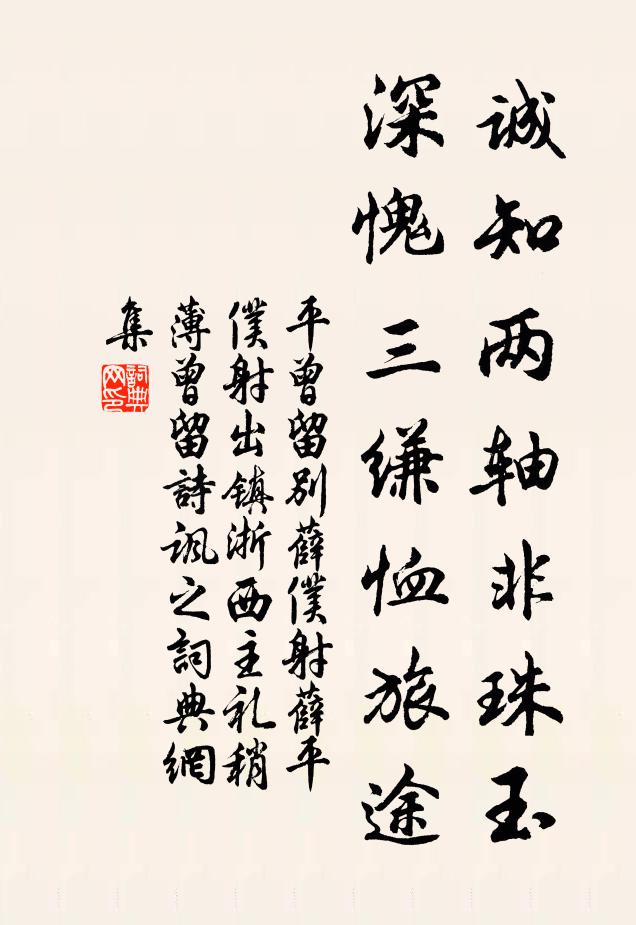 诚知两轴非珠玉
深愧三縑恤旅途
平曾留別薛僕射薛平
僕射出镇浙西主礼稍
薄曾留詩諷之詞典網
集
詞典网印